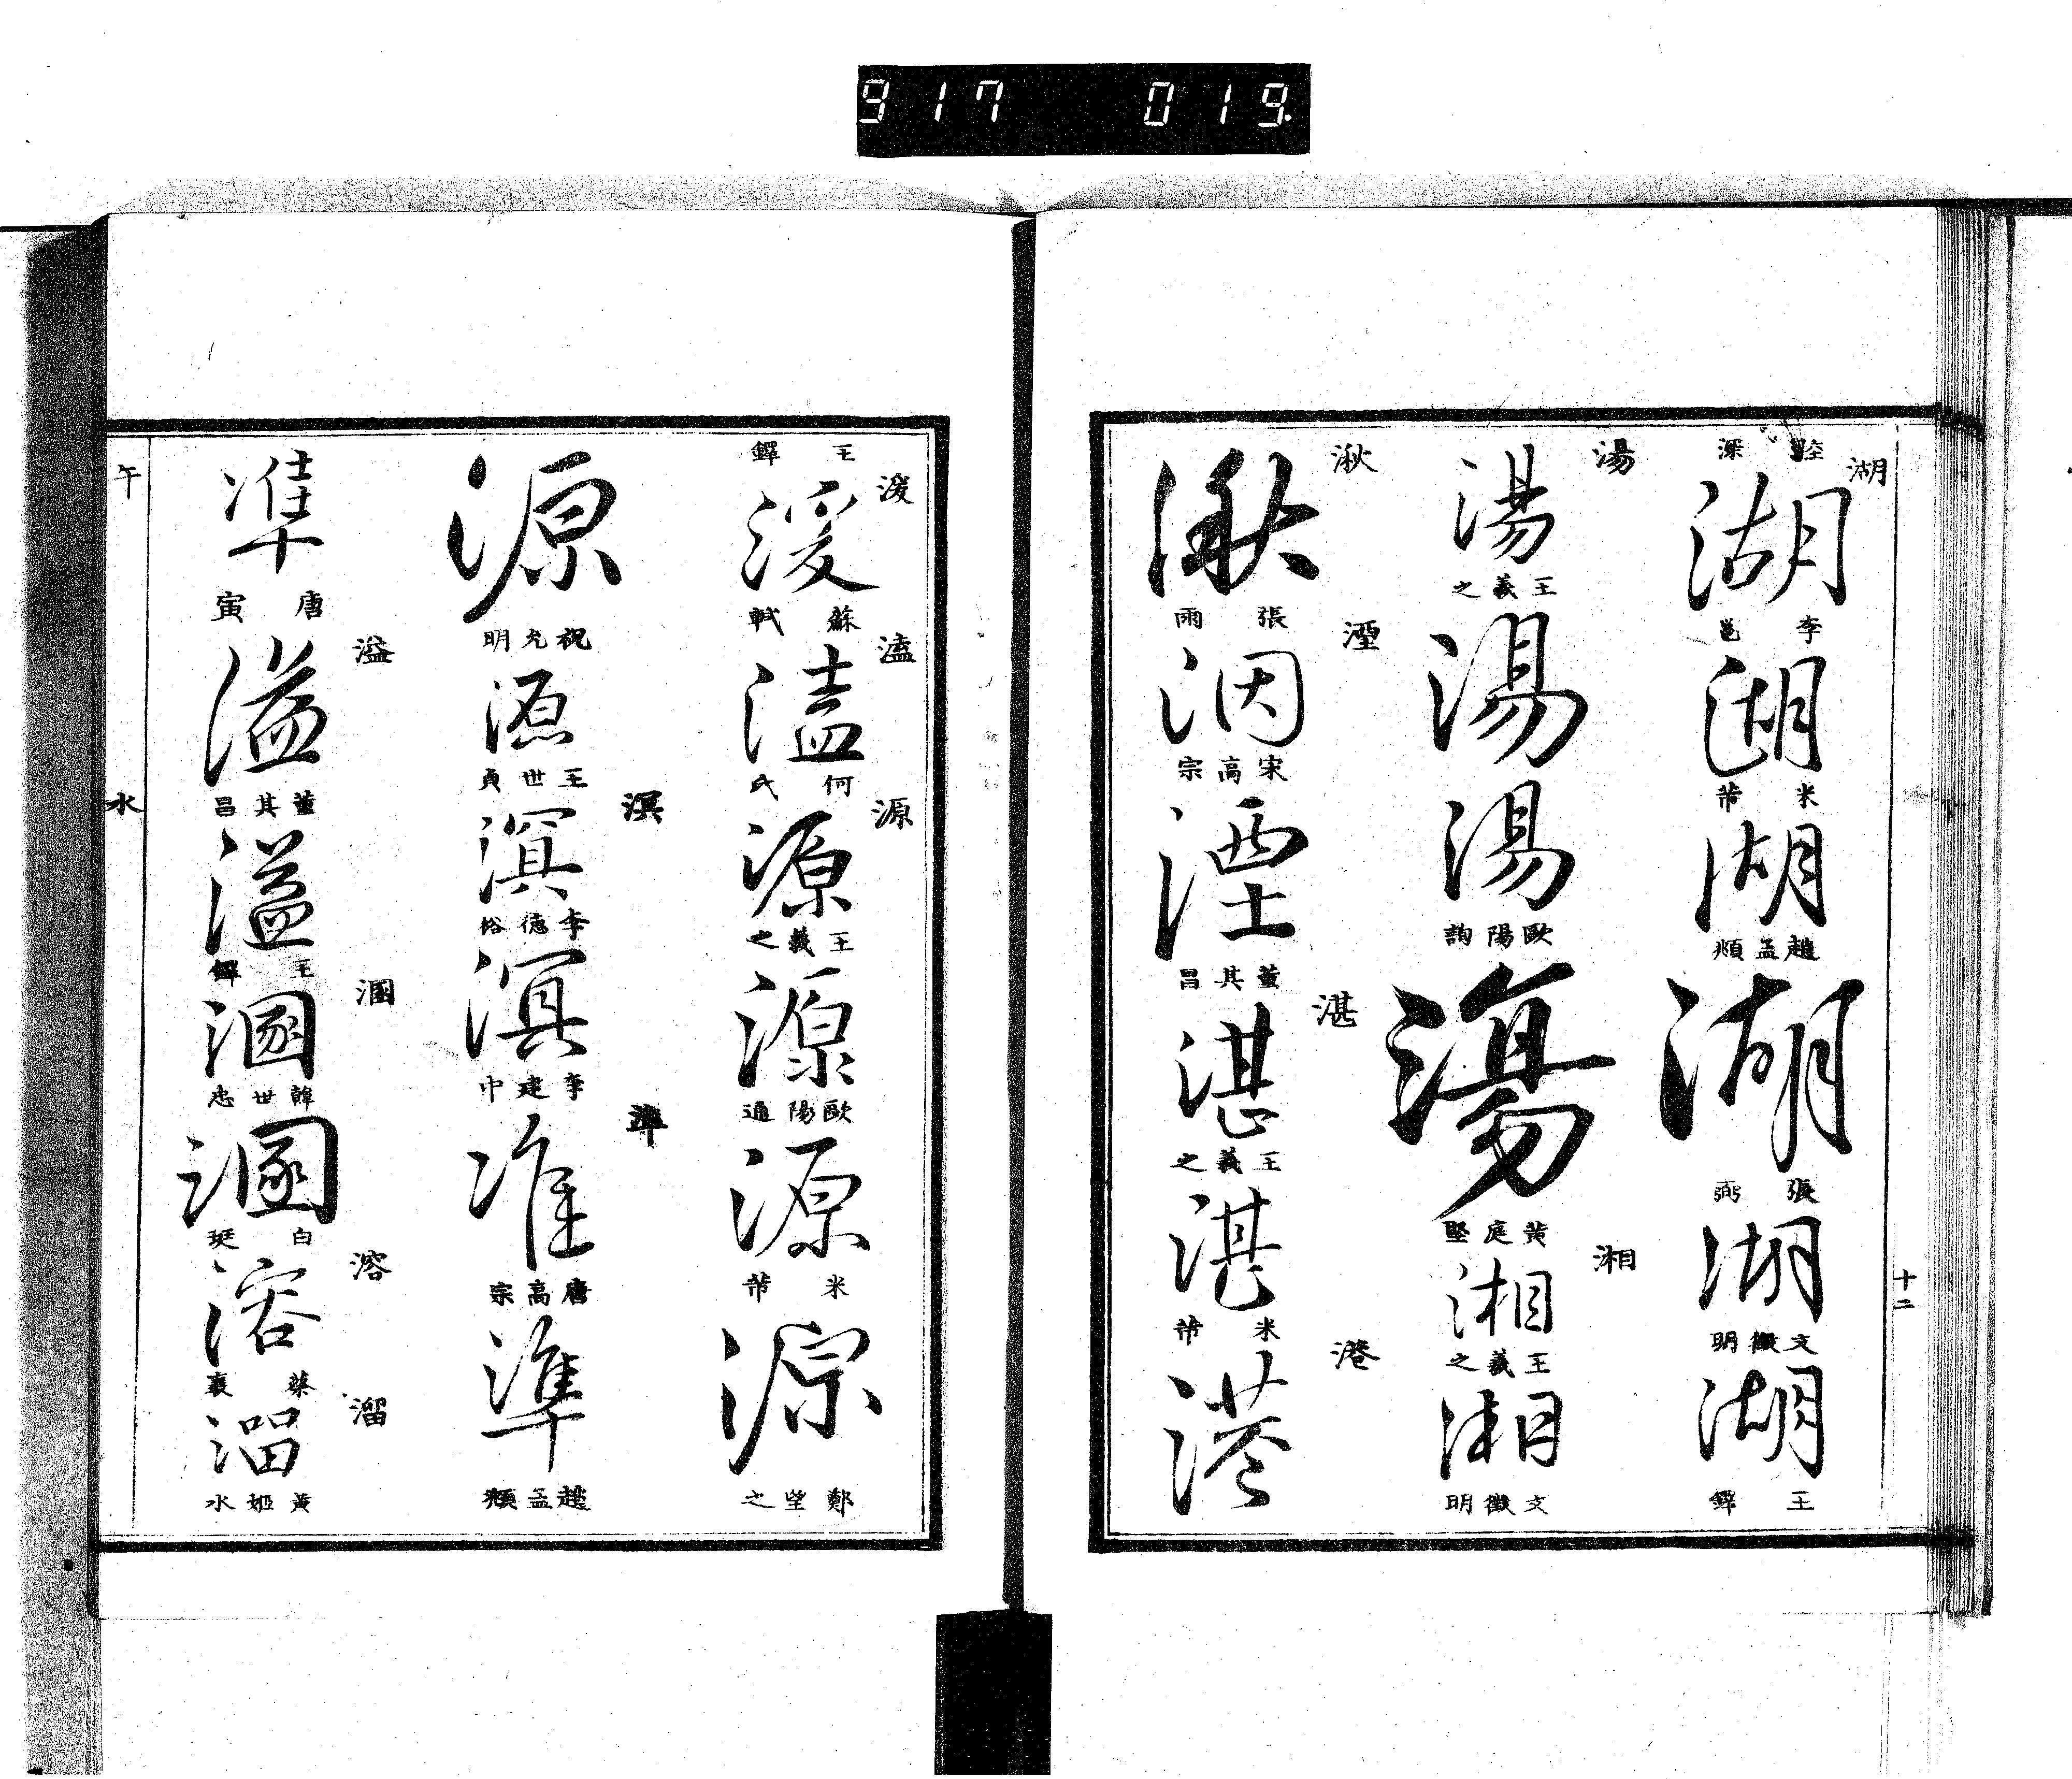 917 019
十二
湖
陸深
湖
李邕
湖
米芾
湖
趙孟頫
湖
張弼
湖
文徵明
湖
王鐸
湯
湯
王羲之
湯
湯
歐陽詢
湯
黄庭堅
湘
湘
王羲之
湘
文徵明
湫
湫
張雨
湮
洇
宋高宗
湮
董其昌
湛
湛
王羲之
湛
米芾
港
港
王鐸
湲
湲
蘇軾
溘
溘
何氏
源
源
王羲之
源
歐陽通
源
米芾
源
鄭望之
源
祝允明
源
王世貞
溟
溟
李德裕
溟
李建中
準
准
唐高宗
準
趙孟頫
準
唐寅
溢
溢
董其昌
溢
王鐸
溷
溷
韓世忠
溷
白珽
溶
溶
蔡襄
溜
溜
黄姬水
午
水